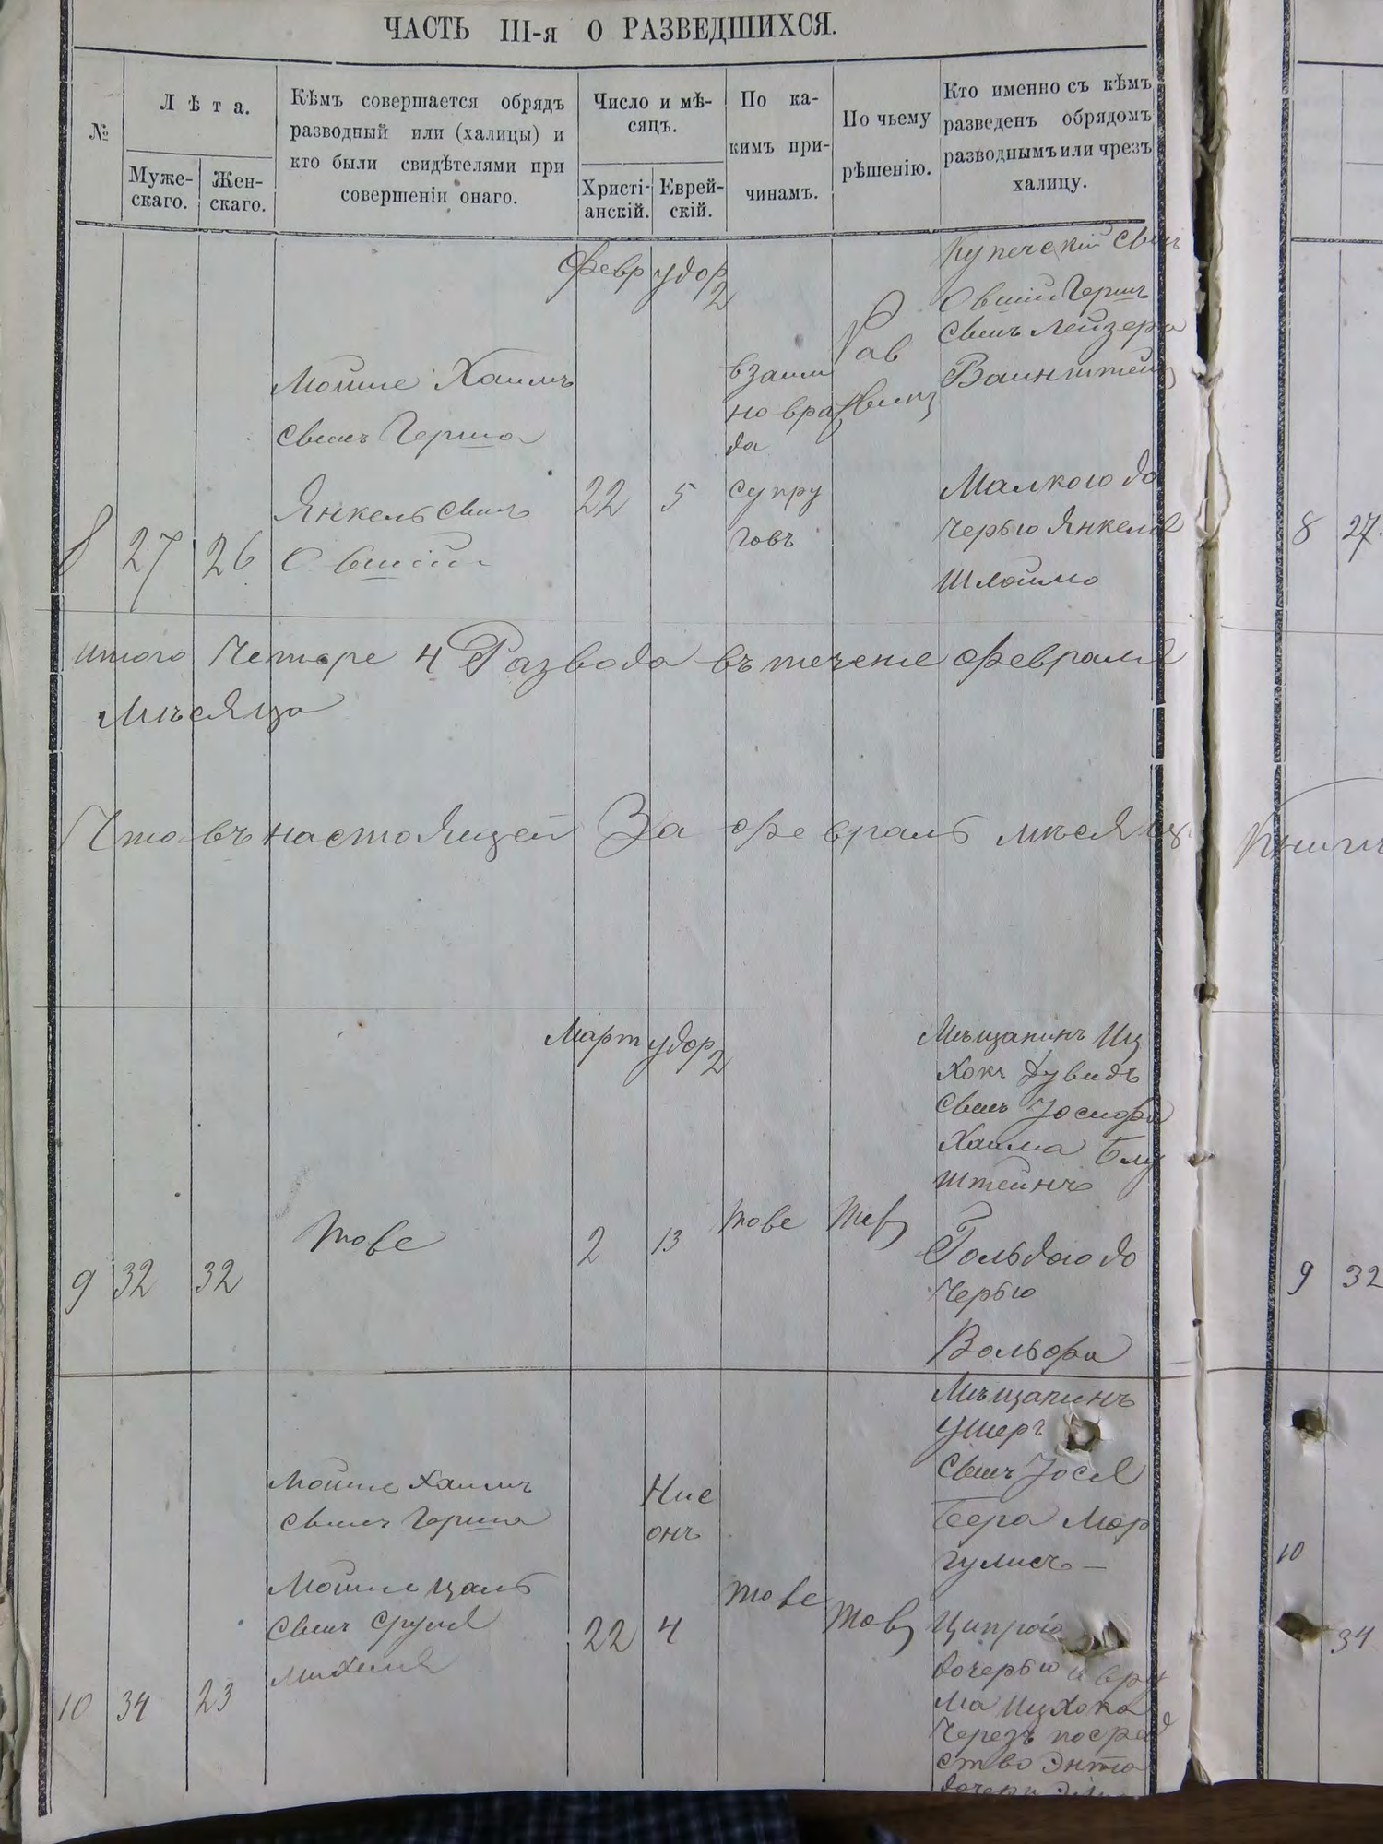 ЧАСТЬ III-я О РАЗВЕДШИХСЯ.
№
Лѣта.
Муже-
скаго.
Жен-
скаго.
Кѣмъ совершается обрядъ
разводный или (халицы) и
кто были свидѣтелями при
совершеніи онаго.
Число и мѣ-
сяцъ.
Христі-
анскій.
Еврей-
скій.
По ка-
кимъ при-
чинамъ.
По чьему
рѣшенію.
Кто именно съ кѣмъ
разведенъ обрядомъ
разводнымъ или чрезъ
халицу.
8
27
26
Мойше Хаимъ
сынъ Герша
Янкель сынъ
Овшія
Февр
22
удор
2
5
взаим
но вра
да
супру
говъ
Рав
Купеческій сынъ
Овшій Гершъ
сынъ Лейзера
Ваинштейнъ
Малкою до
черью Янкеля
Шлоймо
итого Четыре 4 Развода въ теченіе Февраля
мѣсяца
Что въ настоящей За февраль мѣсяцъ
9
32
32
тоже
Март
2
удор
2
13
тоже
тоже
Мѣщанинъ Иц
хокъ Дувидъ
сынъ Іосифа
Хаима Блу
штейнъ
Гольдою до
черью
Вольфа
10
34
23
Мойше Хаимъ
сынъ Герша
Мойше
сынъ Сруля
Михеля
22
Нис
онъ
4
тоже
тоже
Мѣщанинъ
Ушеръ
сынъ Іося
Бера Мар
гулисъ
Ципрою
дочерью Авру
ма Ицхока
Черезъ посред
ство Энта
8
27
9
32
10
34